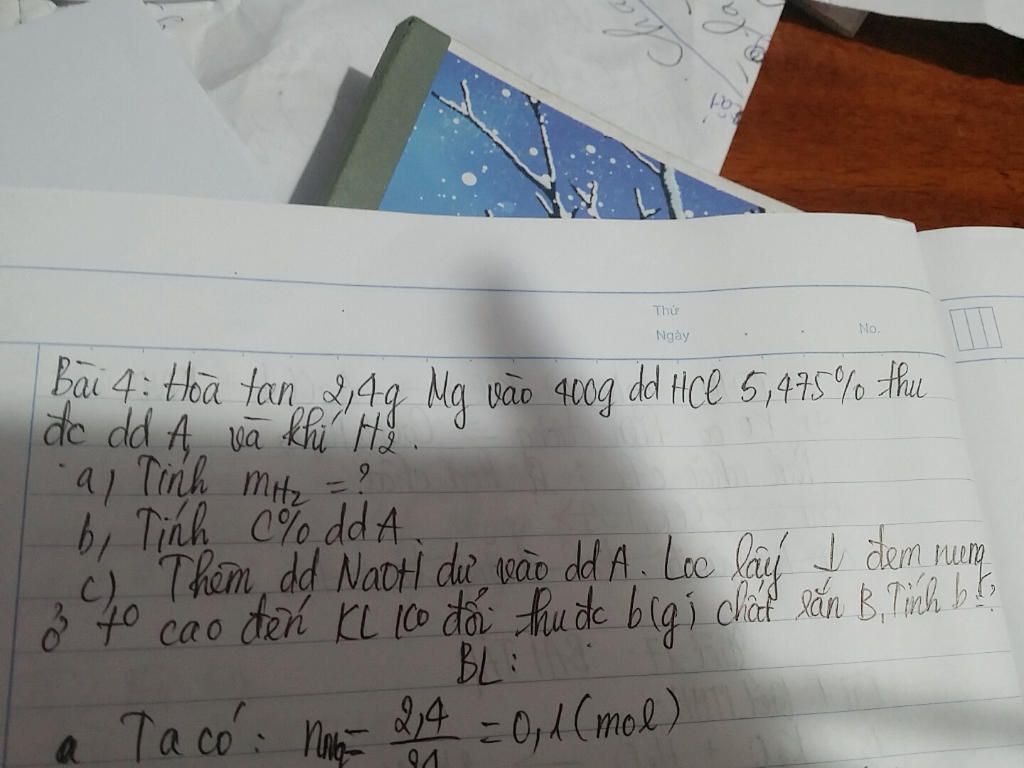 Thứ
Ngày
No.
Bài 4: Hoà tan 2,4g Mg vào 400g dd HCl 5,475% thu
đc dd A, và khí H2.
a, Tính mH2 = ?
b, Tính C% dd A.
c) Thêm dd NaOH dư vào dd A. Lọc lấy ↓ đem nung
ở to cao đến KL ko đổi thu đc b(g) chất rắn B. Tính b = ?
BL:
a Ta có: nMg = 2,4/24 = 0,1 (mol)